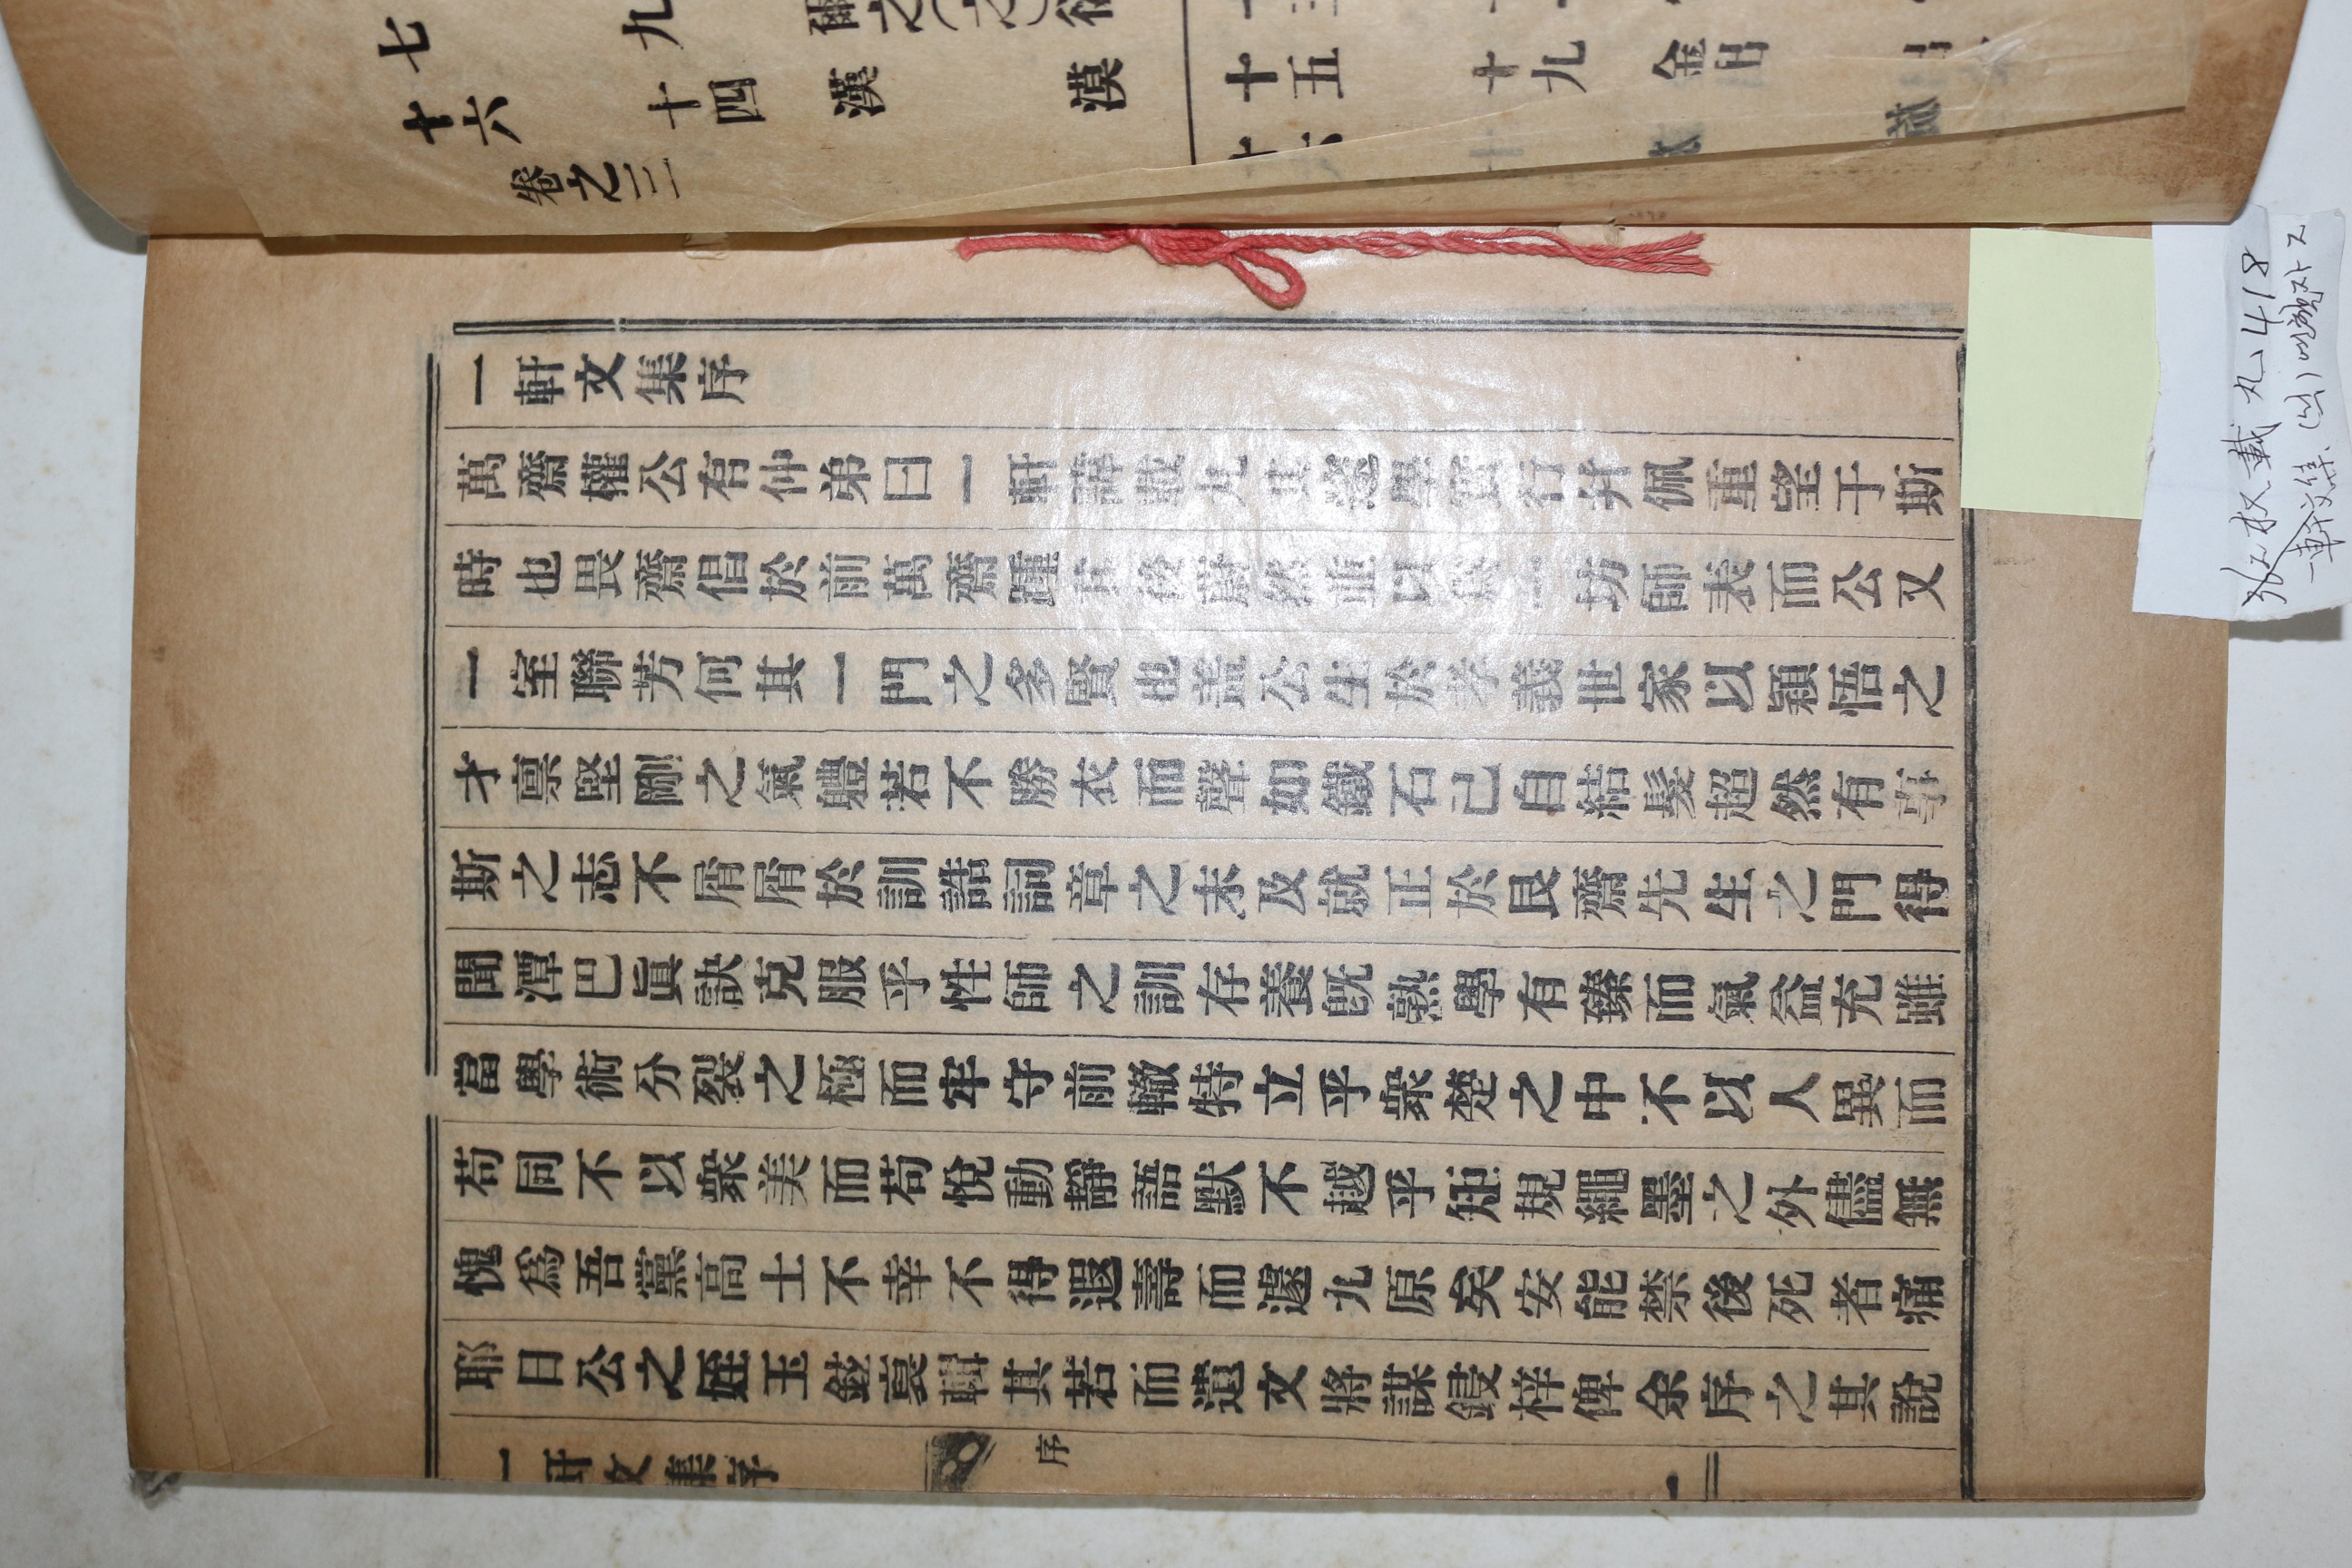 一軒文集序
萬齋權公有仲弟曰一軒諱載九其德學宏行並佩重望于斯
時也畏齋倡於前萬齋踵其後蔚然並以爲一坊師表而公又
一室聯芳何其一門之多賢也蓋公生於孝義世家以穎悟之
才禀堅剛之氣軆若不勝衣而聲如鐵石己自結髮超然有事
斯之志不屑屑於訓誥詞章之末及就正於艮齋先生之門得
聞潭巴眞訣克服乎性師之訓存養旣熟學有臻而氣益充雖
當學術分裂之極而牢守前轍特立乎衆楚之中不以人異而
苟同不以衆美而苟悅動靜語默不越乎矩規繩墨之外儘無
愧爲吾黨高士不幸不得遐壽而遽九原矣安能禁後死者痛
耶日公之姪玉鉉裒輯其若而遺文將謀鋟梓俾余序之其說
一軒文集序 序 一
七
十六
卷之三
九
十四
漢
漠
十五
十九
金
权載九 418
一軒文集